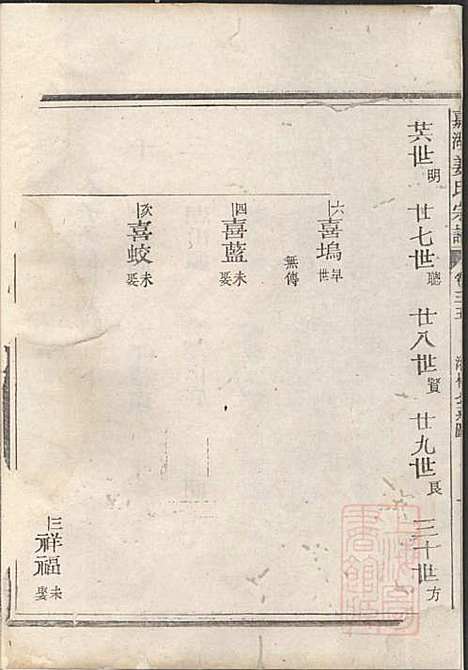 嘉湖姜氏宗譜 卷三五
茿世明 廿七世聰 廿八世賢 廿九世良 三十世方
六喜塢早世
無傳
四喜藍未娶
次喜蛟未娶
三祥福未娶